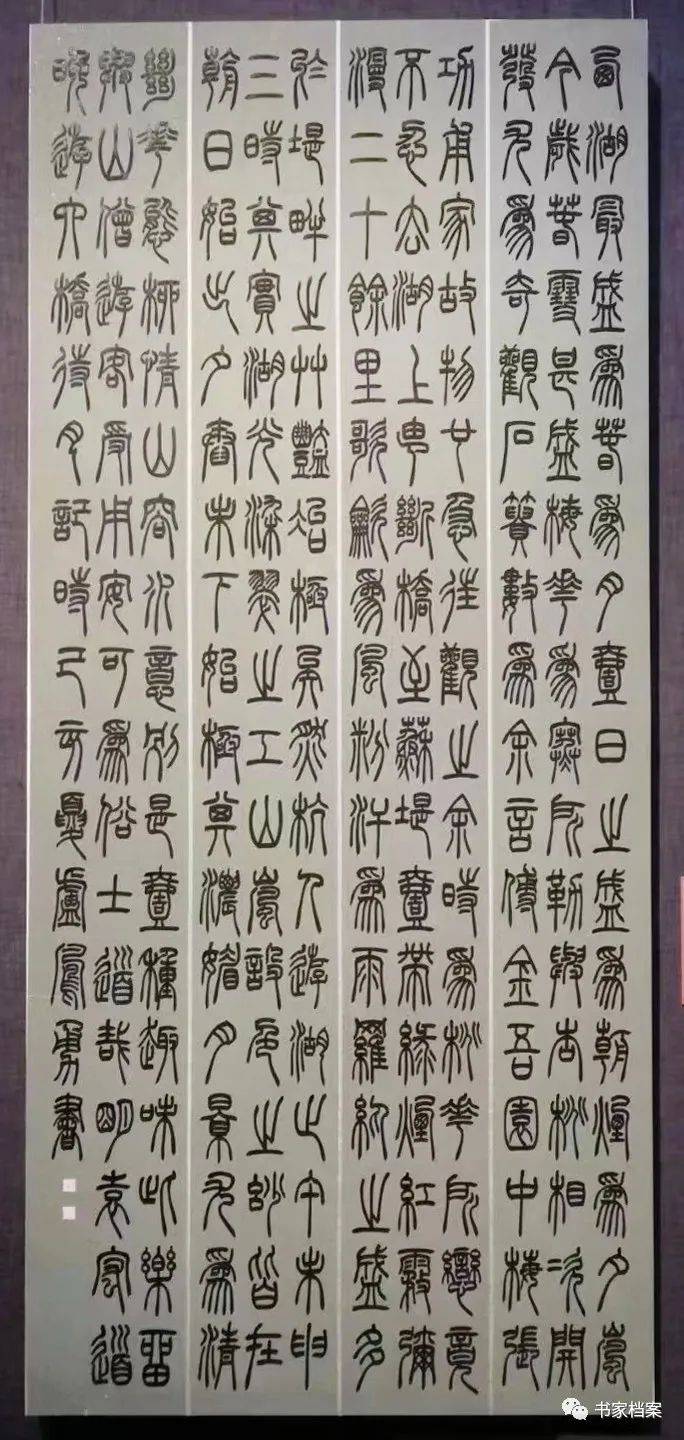 西湖最盛爲春爲月壹日之盛爲朝煙爲夕嵐
今歲春雪甚盛梅花爲寒所勒與杏桃相次開
發尤爲奇觀石簣數爲余言傅金吾園中梅張
功甫家故物也急往觀之余時爲桃花所戀竟
不忍去湖上由斷橋至蘇堤壹帶綠煙紅霧彌
漫二十餘里歌吹爲風粉汗爲雨羅紈之盛多
於堤畔之艸豔冶極矣然杭人遊湖止午未申
三時其實湖光染翠之工山嵐設色之妙皆在
朝日始出夕舂未下始極其濃媚月景尤爲清
絕花態柳情山容水意別是壹種趣味此樂留
與山僧遊客受用安可爲俗士道哉明袁宏道
晚遊六橋待月記時己亥夏盧鳳勇書
书家档案